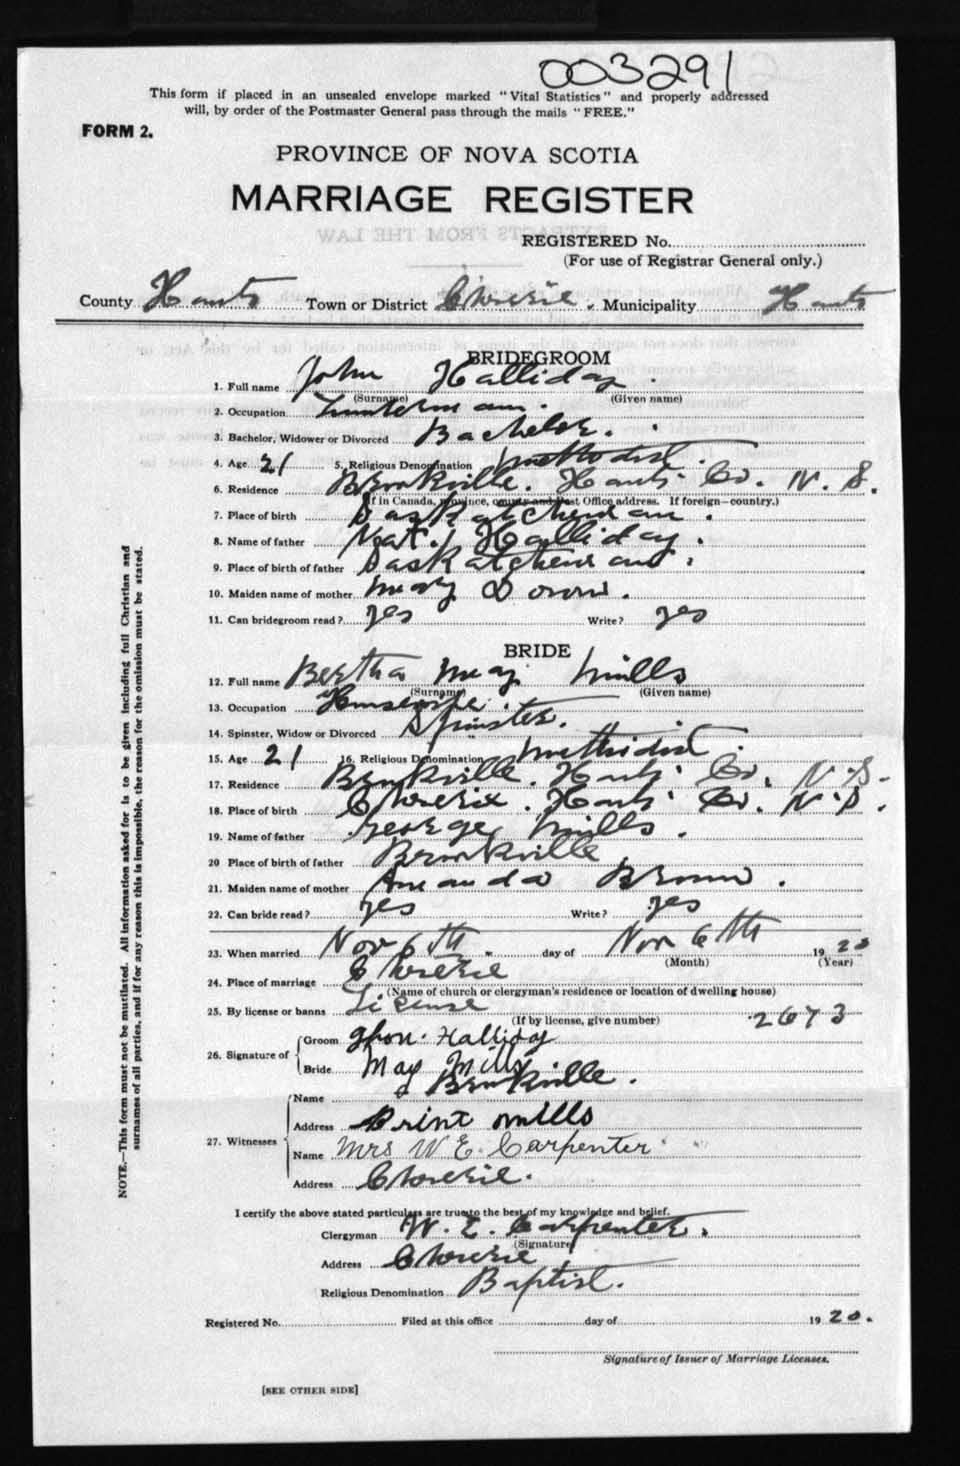 003291
This form if placed in an unsealed envelope marked "Vital Statistics" and properly addressed
will, by order of the Postmaster General pass through the mails "FREE."
FORM 2.
PROVINCE OF NOVA SCOTIA
MARRIAGE REGISTER
REGISTERED No.
(For use of Registrar General only.)
County Hants Town or District Cheverie. Municipality Hants
BRIDEGROOM
1. Full name John Halliday.
(Surname) (Given name)
2. Occupation Lumberman.
3. Bachelor, Widower or Divorced Bachelor.
4. Age 21 5. Religious Denomination Methodist.
6. Residence Brookville. Hants Co. N. S.
(If in Canada, province, county and Post Office address. If foreign—country.)
7. Place of birth Saskatchewan.
8. Name of father Nat. Halliday.
9. Place of birth of father Saskatchewan.
10. Maiden name of mother Mary
11. Can bridegroom read? yes Write? yes
BRIDE
12. Full name Bertha May Mills
(Surname) (Given name)
13. Occupation
14. Spinster, Widow or Divorced Spinster.
15. Age 21 16. Religious Denomination Methodist.
17. Residence Brookville. Hants Co. N.S.
18. Place of birth Cheverie. Hants Co. N.S.
19. Name of father George Mills.
20 Place of birth of father Brookville
21. Maiden name of mother Amanda Brown.
22. Can bride read? yes Write? yes
23. When married Nov 6th. day of Nov 6th 1920
(Month) (Year)
24. Place of marriage Cheverie
(Name of church or clergyman's residence or location of dwelling house)
25. By license or banns License 2673
(If by license, give number)
26. Signature of
Groom Jhon. Halliday
Bride May Mills
Brookville.
27. Witnesses
Name
Address Mills
Name Mrs W E. Carpenter
Address Cheverie.
I certify the above stated particulars are true to the best of my knowledge and belief.
Clergyman W. E. Carpenter.
(Signature)
Address Cheverie
Religious Denomination Baptist.
Registered No. Filed at this office day of 1920.
Signature of Issuer of Marriage Licenses.
[SEE OTHER SIDE]
NOTE.—This form must not be mutilated. All information asked for is to be given including full Christian and
surnames of all parties, and if for any reason this is impossible, the reason for the omission must be stated.